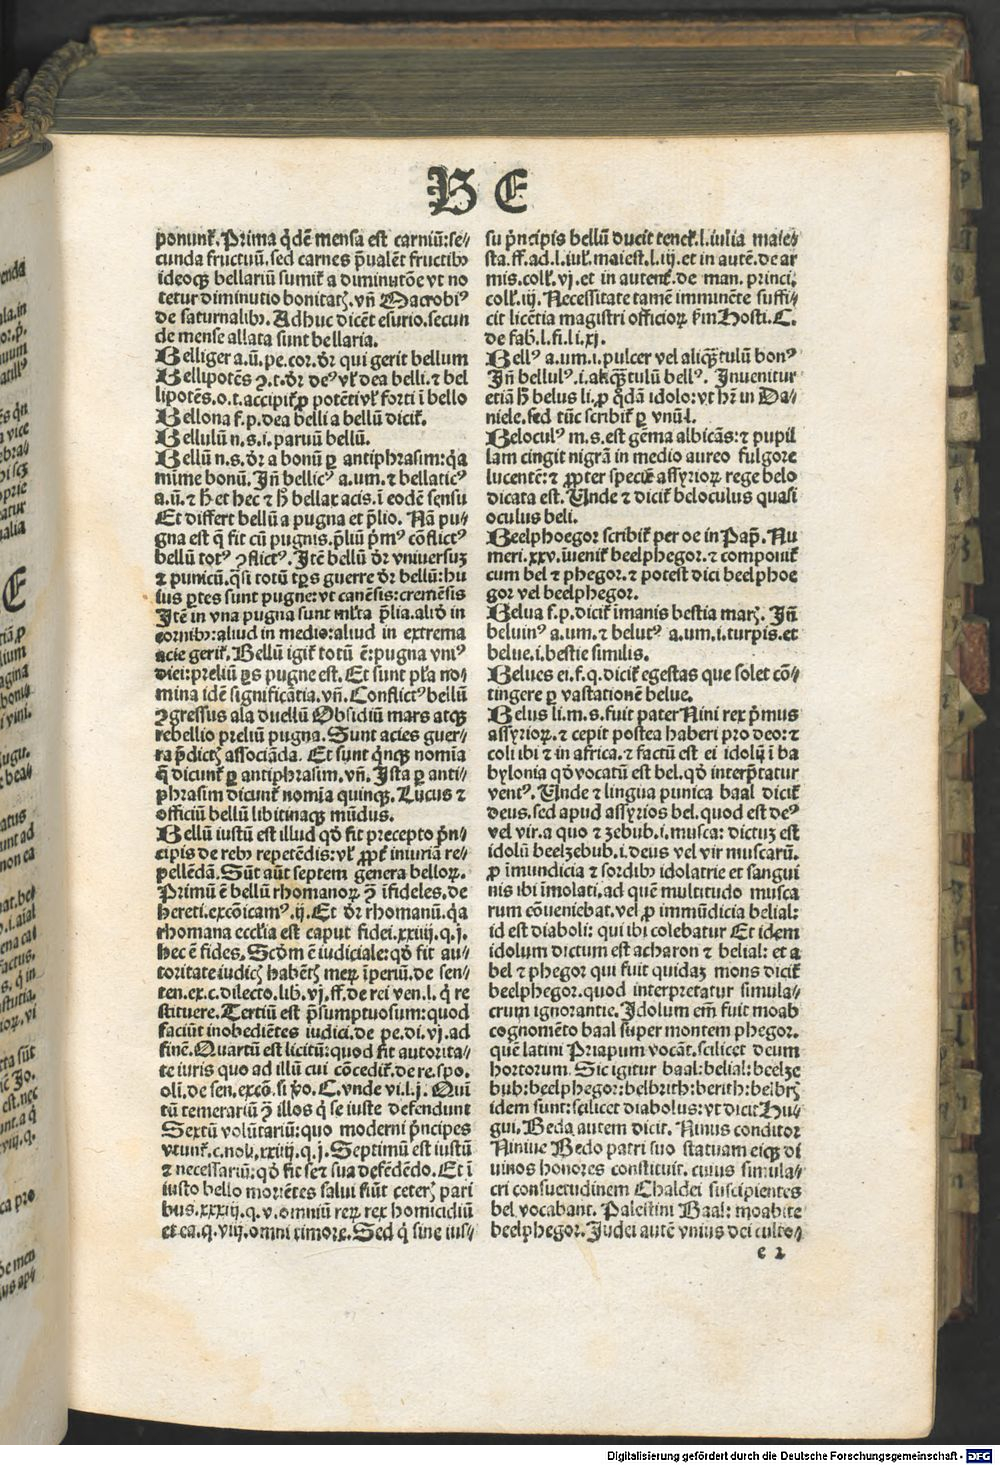 BE
ponunt᷑. Prima q̇dē mensa est carniū: se⸗
cunda fructuū. sed carnes p̄ualēt fructibꝫ
ideoqꝫ bellariū sumit᷑ a diminutōe vt no
tetur diminutio bonitatꝭ. vn̄ Macrobiꝰ
de saturnalibꝫ. Adhuc dicēt esurio. secun
de mense allata sunt bellaria.
Belliger a. ū. pe. cor. dr̄ qui gerit bellum
Bellipotēs ꝛ. t. dr̄ deꝰ vl᷑ dea belli. ⁊ bel
lipotēs. o. t. accipit᷑ ꝓ potēti vl᷑ forti ī bello
Bellona f. p. dea belli a bellū dicit᷑.
Bellulū n. s. i. paruū bellū.
Bellū n. s. dr̄ a bonū ꝑ antiphrasim: q̄a
mīme bonū. Jn̄ bellicꝰ a. um. ⁊ bellaticꝰ
a. ū. ⁊ h̄ et hec ⁊ h̄ bellax acis. ī eodē sensu
Et differt bellū a pugna et p̄lio. Nā pu⸗
gna est q̄ fit cū pugnis. p̄liū p̄mꝰ cōflictꝰ
bellū totꝰ ꝯflictꝰ. Jtē bellū dr̄ vniuersuꝫ
⁊ punicū. q̄si totū tp̄s guerre dr̄ bellū: hu
ius ꝑtes sunt pugne: vt canēsis: cremēsis
Jtē in vna pugna sunt ml̄ta p̄lia. aliḋ in
cornibꝫ: aliud in medio: aliud in extrema
acie gerit᷑. Bellū igit᷑ totū ē: pugna vniꝰ
diei: preliū ꝑs pugne est. Et sunt pl᷑a no⸗
mina idē significātia. vn̄. Conflictꝰ bellū
ꝯgressus ala duellū Obsidiū mars atqꝫ
rebellio preliū pugna. Sunt acies guer⸗
ra p̄dictꝭ associāda. Et sunt q̇nqꝫ nomīa
q̄ dicunt᷑ ꝑ antiphrasim. vn̄. Jsta ꝑ anti⸗
phrasim dicunt᷑ nomīa quinqꝫ. Lucus ⁊
officiū bellū libitinaqꝫ mūdus.
Bellū iustū est illud qḋ fit precepto p̄n⸗
cipis de rebꝫ repetēdis: vl᷑ ꝓpt᷑ iniuriā re⸗
pellēdā. Sūt aūt septem genera belloꝝ.
Primū ē bellū rhomanoꝝ ꝯ̄ īfideles. de
hereti. excōicamꝰ. ij. Et dr̄ rhomanū. q̄a
rhomana eccl᷑ia est caput fidei. xxiiij. q. j.
hec ē fides. Scḋm ē iudiciale: qḋ fit au⸗
toritate iudicꝭ habētꝭ meꝝ īperiū. de sen⸗
ten. ex. c. dilecto. lib. vj. ff. de rei ven. l. q̇ re
stituere. Tertiū est p̄sumptuosum: quod
faciūt inobediētes iudici. de pe. di. vj. ad
finē. Quartū est licitū: quod fit autorita⸗
te iuris quo ad illū cui cōcedit᷑. de re. spo.
oli. de sen. excō. si v̊o. C. vnde vi. l. j. Quī
tū temerariū ꝯ̄ illos q̇ se iuste defendunt
Sextū volūtariū: quo moderni p̄ncipes
vtunt᷑. c. noli. xxiiij. q. j. Septimū est iustū
⁊ necessariū: qḋ fit se ⁊ sua defēdēdo. Et ī
iusto bello moriētes salui fiūt ceterꝭ pari
bus. xxxiij. q. v. omniū reꝝ rex homicidiū
et ea. q. viij. omni timore. Sed q̇ sine ius⸗
su p̄ncipis bellū ducit tenet᷑. l. iulia maie⸗
sta. ff. ad. l. iul᷑. maiest. l. iij. et in autē. de ar
mis. coll᷑. vj. et in autent᷑. de man. princi.
coll᷑. iij. Necessitate tamē imminēte suffi⸗
cit licētia magistri officioꝝ ẜm Hosti. C.
de fab. l. fi. li. xj.
Bellꝰ a. um. i. pulcer vel aliqꝫtulū bonꝰ
Jn̄ bellulꝰ. i. aliqꝫtulū bellꝰ. Jnuenitur
etiā h̄ belus li. ꝓ q̄dā idolo: vt hr̄ in Da⸗
niele. sed tūc scribit᷑ ꝑ vnū. l.
Beloculꝰ m. s. est gēma albicās: ⁊ pupil
lam cingit nigrā in medio aureo fulgore
lucentē: ⁊ ꝓpter speciē assyrioꝝ rege belo
dicata est. Unde ⁊ dicit᷑ beloculus quasi
oculus beli.
Beelphoegor scribit᷑ per oe in Pap̄. Nu
meri. xxv. īuenit᷑ beelphegor. ⁊ componit᷑
cum bel ⁊ phegor. ⁊ potest dici beelphoe
gor vel beelphegor.
Belua f. p. dicit᷑ imanis bestia marꝭ. Jn̄
beluinꝰ a. um. ⁊ belutꝰ a. um. i. turpis. et
belue. i. bestie similis.
Belues ei. f. q. dicit᷑ egestas que solet cō⸗
tingere ꝑ vastationē belue.
Belus li. m. s. fuit pater Nini rex p̄mus
assyrioꝝ. ⁊ cepit postea haberi pro deo: ⁊
coli ibi ⁊ in africa. ⁊ factū est ei idolū ī ba
bylonia qḋ vocatū est bel. qḋ interp̄tatur
ventꝰ. Unde ⁊ lingua punica baal dicit᷑
deus. sed apud assyrios bel. quod est deꝰ
vel vir. a quo ⁊ zebub. i. musca: dictuꝫ est
idolū beelzebub. i. deus vel vir muscarū.
ꝓ īmundicia ⁊ sordibꝫ idolatrie et sangui
nis ibi īmolati. ad quē multitudo musca
rum cōueniebat. vel ꝓ immūdicia belial:
id est diaboli: qui ibi colebatur Et idem
idolum dictum est acharon ⁊ belial: et a
bel ⁊ phegor qui fuit quidaꝫ mons dicit᷑
beelphegor. quod interpretatur simula⸗
crum ignorantie. Jdolum em̄ fuit moab
cognomēto baal super montem phegor.
quē latini Priapum vocāt. scilicet deum
hortorum. Sic igitur baal: belial: beelze
bub: beelphegor: belbrith: berith: belbrꝭ
idem sunt: scilicet diabolus: vt dicit Hu⸗
gui. Beda autem dicit. Ninus conditor
Niniue Bedo patri suo statuam eiqꝫ di
uinos honores constituit. cuius simula⸗
cri consuetudinem Chaldei suscipientes
bel vocabant. Palestini Baal: moabite
beelphegor. Judei autē vnius dei culto⸗
e 2
Digitalisierung gefördert durch die Deutsche Forschungsgemeinschaft - DFG